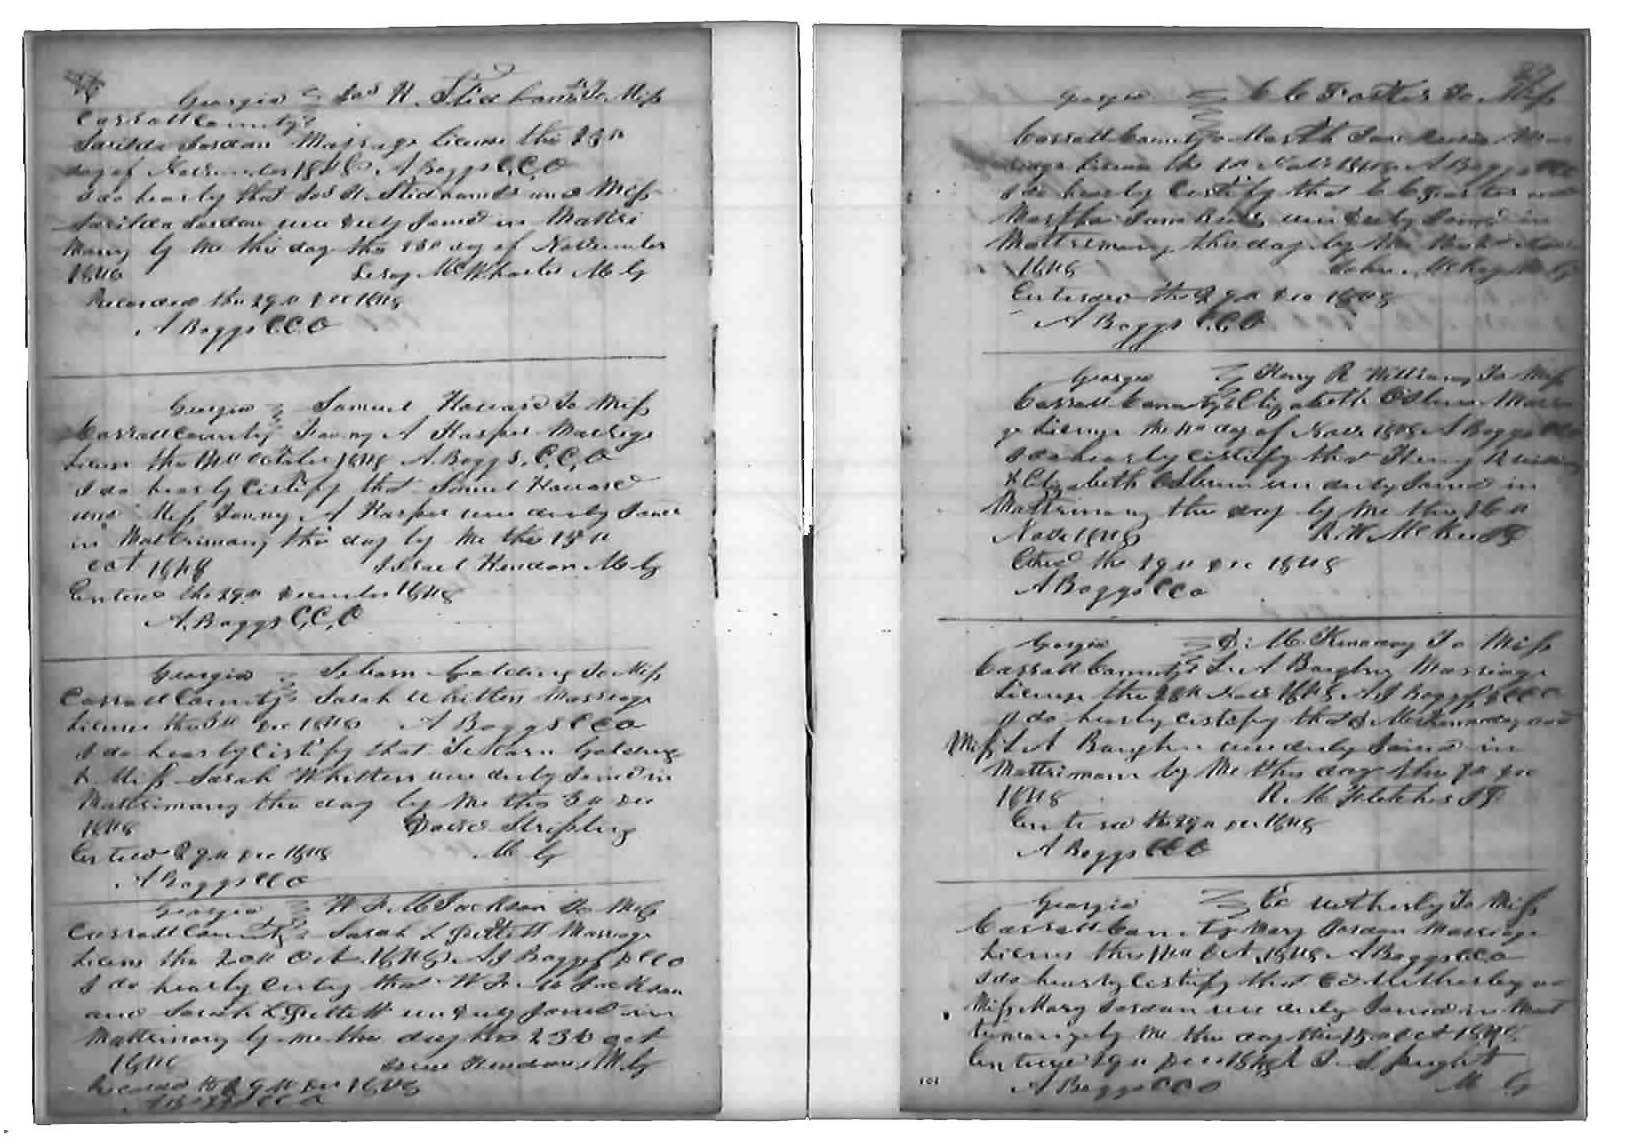 Georgia Jas H. Stidham To Miss
Carroll County
Sarilda Jordan Marriage license the 23rd
day of November 1848 A Boggs C.C.O
I do hearby that Jas H. Stidham and Miss
Sarilda Jordan were duly Joined in Mattri
mony by me this day the 23rd day of November
1848 Leroy McWhorter M G
Recorded the 29th Dec 1848
A Boggs C.C.O
Georgia Samuel Howard To Miss
Carroll County Fanny A Harper Marriage
License the 14th October 1848 A. Boggs, C,C,O
I do hearby Certify that Samuel Howard
and Miss Fanny A Harper were duly Joined
in Mattrimony this day by me the 15th
oct 1848 Israel Hendon M G
Entered the 29th December 1848
A. Boggs C,C,O
Georgia Seborn Golding To Miss
Carroll County Sarah Whitten Marriage
License the 3rd Dec 1848 A Boggs C C O
I do hearby Certify that Seborn Golding
& Miss Sarah Whitten were duly Joined in
Mattrimony this day by me this 3rd Dec
1848 David Stripling
Entered 29th Dec 1848 M G
A Boggs C C O
Georgia W F M Jackson To Miss
Carroll County Sarah L Marriage
License the 20th Oct 1848 A J Boggs D C C O
I do hearby Certify that W F M Jackson
and Sarah L were duly Joined in
Mattrimony by me this day the 23d oct
1848 Hendon M G
Recorded the 29th Dec 1848
A Boggs C C O
39
Georgia C C Foster To Miss
Carroll County Martha Jane
License the 1st Nov 1848 A Boggs C C O
I do hearby Certify that C C Foster and
Martha Jane were duly Joined in
Mattrimony this day by me
1848 John McKoy M G
Entered the 29th Dec 1848
A Boggs C.C.O
Georgia Henry R Williams To Miss
Carroll County Elizabeth Osburn Marria
ge License the 4th day of Nov 1848 A Boggs C C O
I do hearby Certify that Henry R Williams
& Elizabeth Osburn were duly Joined in
Mattrimony this day by me this 16th
Nov 1848 R W
Entered the 29th Dec 1848
A Boggs C C O
Georgia D. M. Kennaday To Miss
Carroll County L. A Baughn Marriage
License the 28th Nov 1848 A J Boggs D C C O
I do hearby Certify that D M Kennaday and
Miss L A Baughn were duly Joined in
Mattrimony by me this day the 7th Dec
1848 R. M Fletcher J P
Entered the 29th Dec 1848
A Boggs C C O
Georgia Ed Wetherby To Miss
Carroll County Mary Jordan Marriage
License the 14th Oct, 1848 A Boggs C C O
I do hearby Certify that Ed Wetherby an
Miss Mary Jordan were duly Joined in Matt
rimony by me this day the 15th oct 1848
Entered 29th Dec 1848
A Boggs C C O M G
101